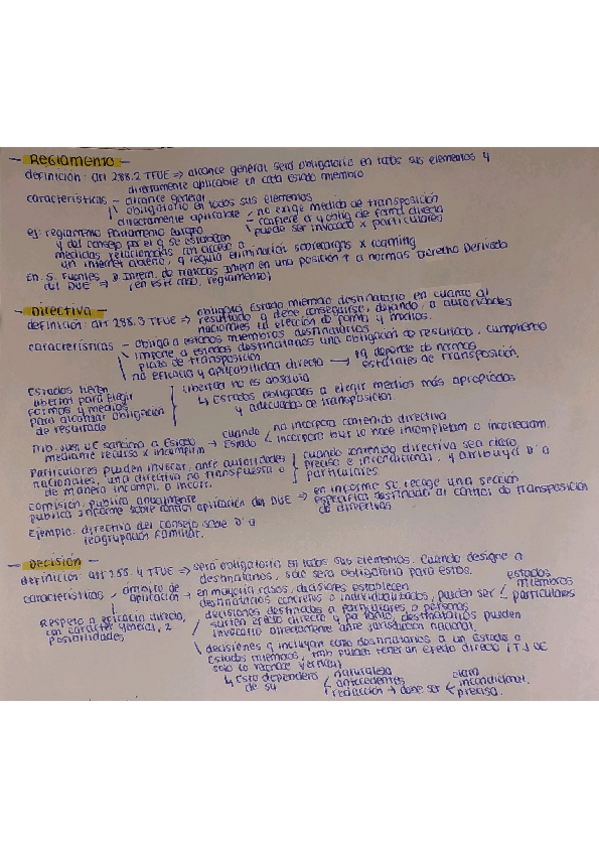 - Reglamento -
definición: art 288.2 TFUE ⇒ alcance general será obligatorio en todos sus elementos y
directamente aplicable en cada Estado miembro
características - alcance general
\ obligatorio en todos sus elementos
directamente aplicable < no exige medida de transposición
confiere dº y oblig de forma directa
puede ser invocado x particulares
ej: reglamento Parlamento Europeo
y del consejo por el q se establecen
medidas relacionadas con acceso a
un internet abierto, y regula eliminación sobrecargos x roaming
En S. Fuentes D. Intern. do Tratados Intern en una posición ↑ a normas Derecho Derivado
del DUE ⇒ (en este caso, reglamento)
- Directiva -
definición: art 288.3 TFUE ⇒ obligará Estado miembro destinatario en cuanto al
resultado q debe conseguirse, dejando, a autoridades
nacionales la elección de forma y medios.
características - obliga a estados miembros destinatarios
\ impone a estados destinatarios una obligación de resultado, cumpliendo
plazo de transposición
\ no eficacia y aplicabilidad directa → pq depende de normas
estatales de transposición.
Estados tienen
libertad para elegir
formas y medios
para alcanzar obligación
de resultado
libertad no es absoluta
↳ Estados obligados a elegir medios más apropiados
y adecuados de transposición.
Trib. Just. UE sanciona a Estado → cuando Estado < no incorpora contenido directiva
mediante recurso x incumplim < incorpora pero lo hace incompletam o incorrectam.
Particulares pueden invocar, ante autoridades
nacionales, una directiva no transpuesta o
de manera incompl. o incorr.
cuando contenido directiva sea claro
preciso e incondicional, y atribuya dº a
particulares
Comisión publica anualmente
publica informe sobre control aplicación del DUE ⇒ en informe se recoge una sección
específica destinada al control do transposición
de directivas
Ejemplo: directiva del consejo sobre dº a
reagrupación familiar.
- Decisión -
definición: art 288.4 TFUE ⇒ será obligatorio en todos sus elementos. Cuando designe a
destinatarios, solo será obligatoria para éstos.
características / ámbito de aplicación → en mayoría casos, decisiones establecen
destinatarios concretos o individualizados, pueden ser < estados miembros
particulares
Respecto a eficacia directa,
con carácter general, 2
posibilidades
/ decisiones destinadas a particulares o personas
surten efecto directo y por tanto, destinatarios pueden
invocarlo directamente ante jurisdicción nacional.
\ decisiones q incluyan como destinatarios a un Estado o
Estados miembros, tmb puedan tener un efecto directo (TJUE
solo lo reconoce vertical)
↳ Esto dependerá de su < naturaleza
antecedentes
redacción → debe ser < clara
incondicional.
precisa.